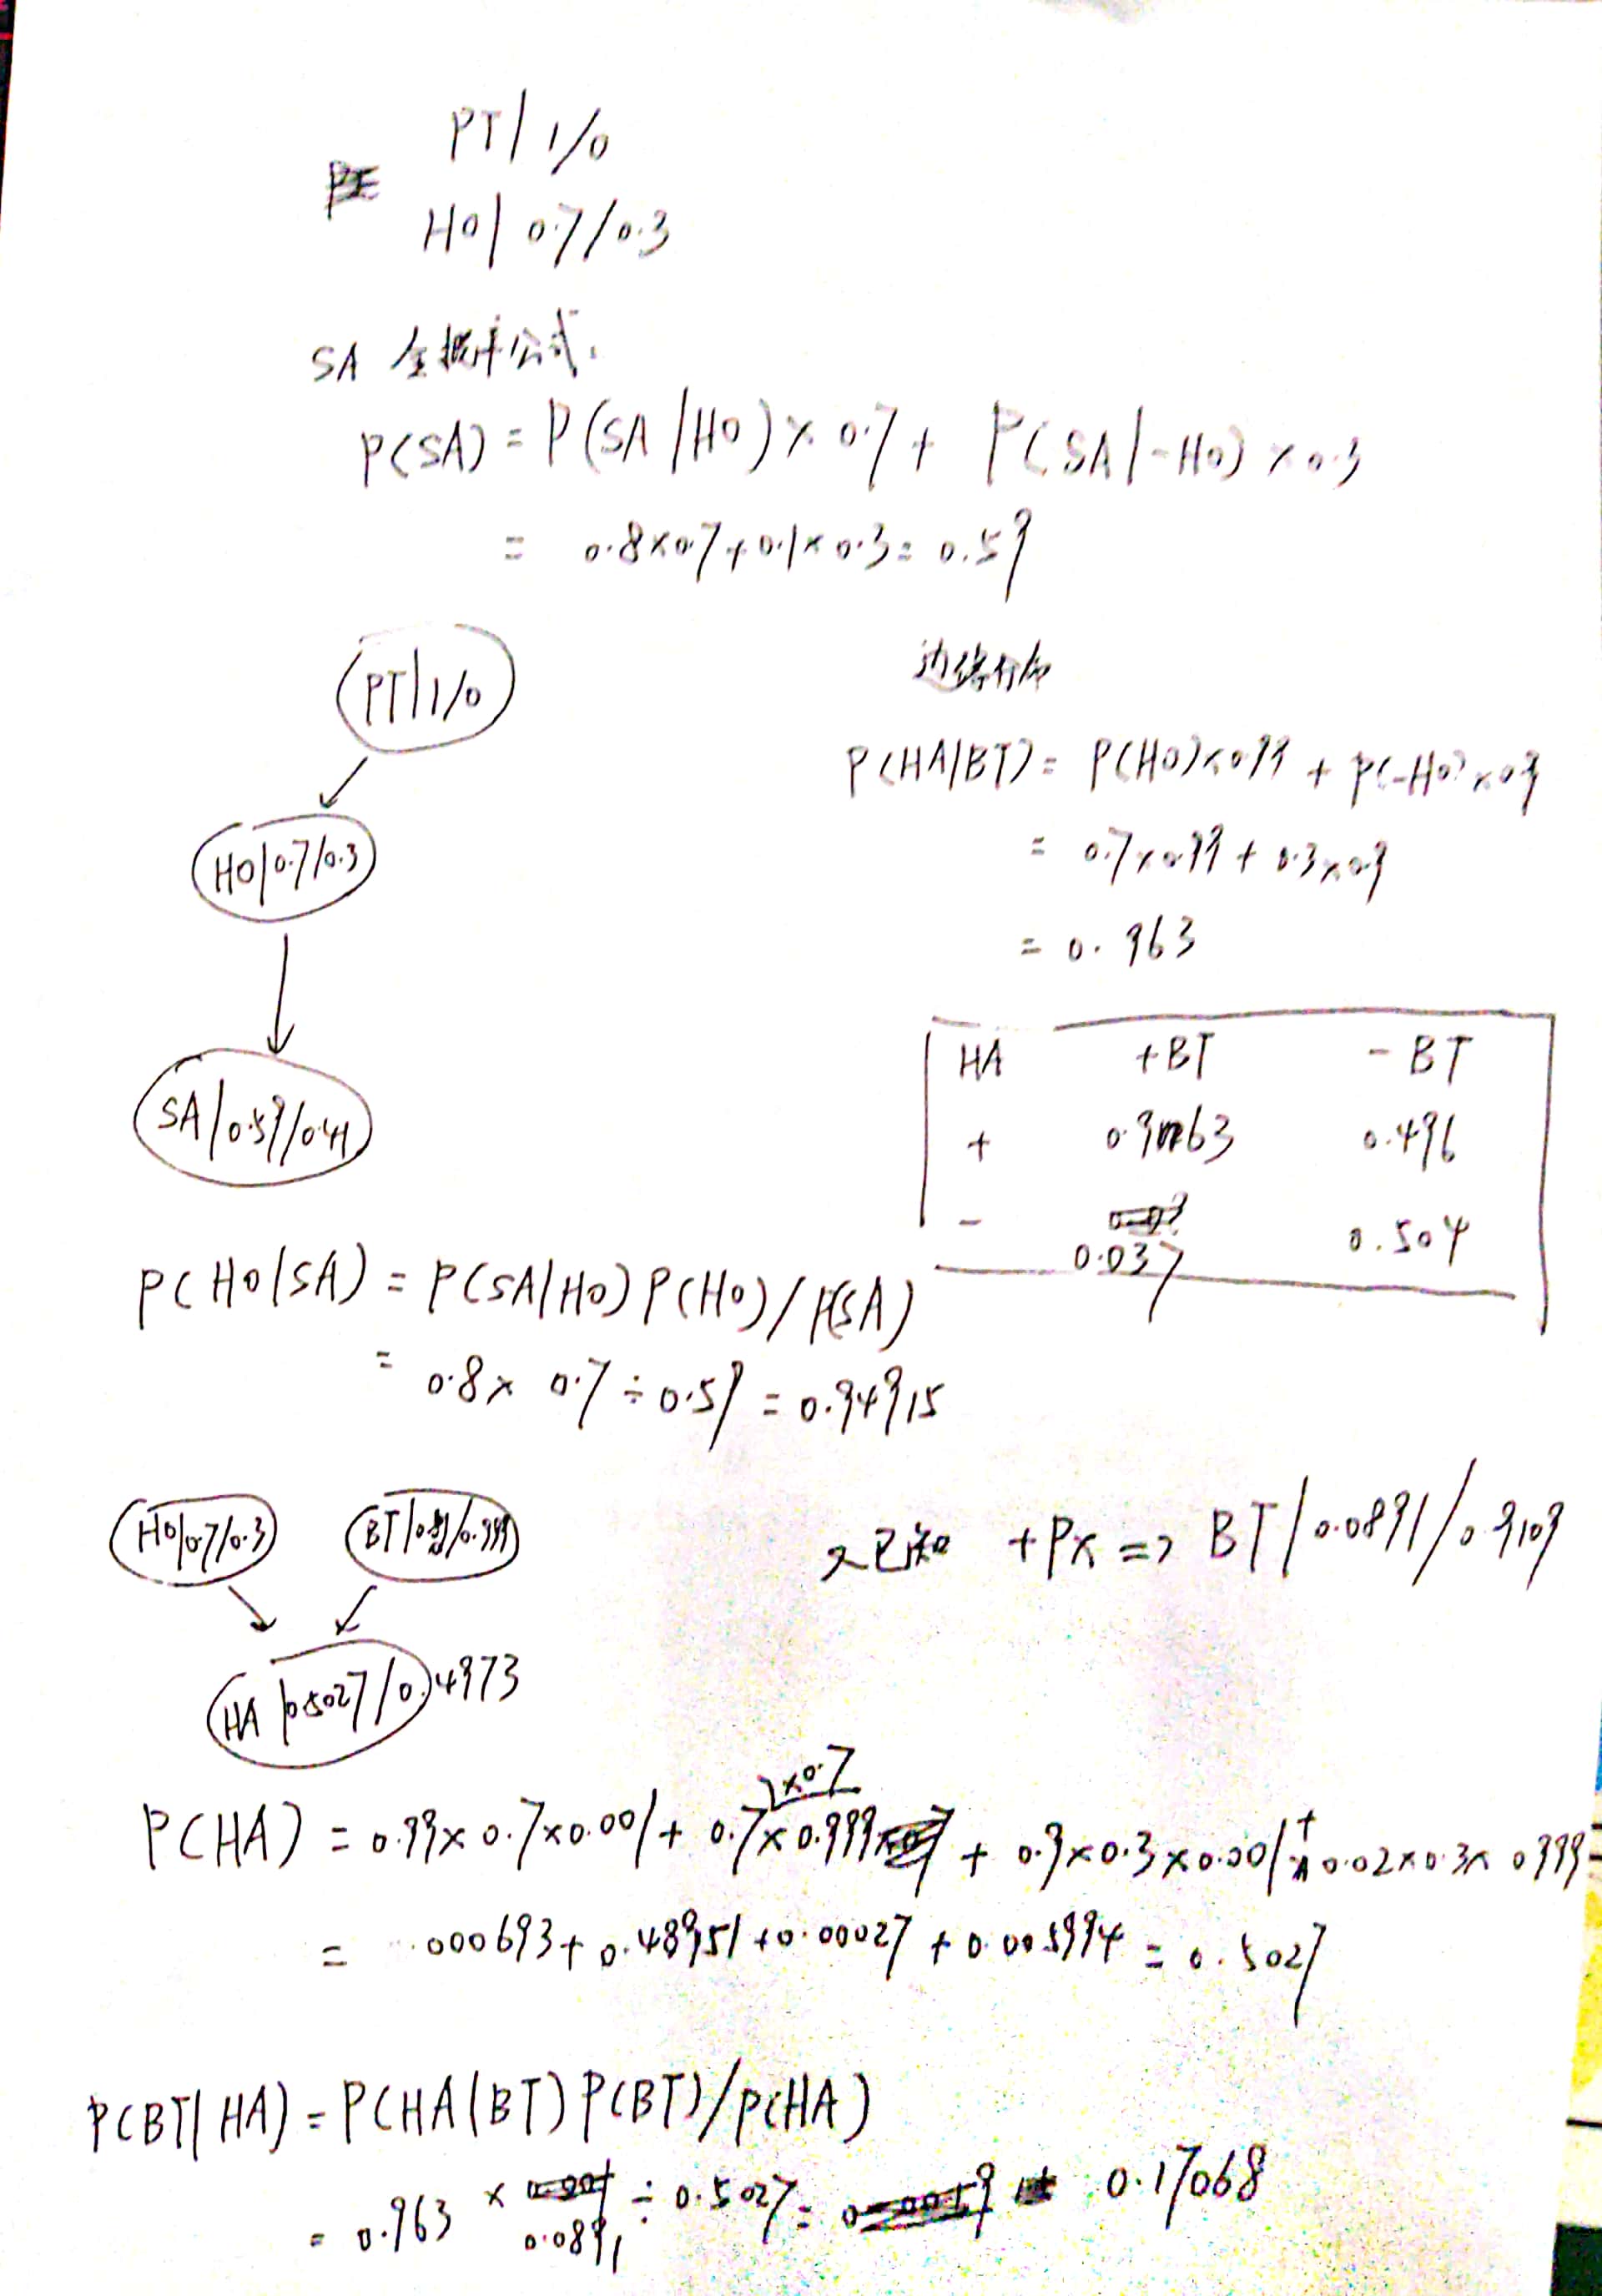 PT|1/0
HO|0.7/0.3
SA 全概率公式.
P(SA) = P(SA|HO)×0.7+ P(SA|-HO)×0.3
= 0.8×0.7+0.1×0.3= 0.59
PT|1/0
HO|0.7/0.3
SA|0.59/0.41
边缘分布
P(HA|BT)= P(HO)×0.99 + P(-HO)×0.9
= 0.7×0.99 + 0.3×0.9
= 0.963
HA +BT -BT
+ 0.963 0.496
- 0.037 0.504
P(HO|SA) = P(SA|HO)P(HO)/P(SA)
= 0.8× 0.7÷0.59 = 0.94915
HO|0.7/0.3 BT|/0.999
HA|0.5027/0.4973
又已知 +PX => BT|0.0891/0.9109
P(HA) = 0.99×0.7×0.001+ 0.7×0.999×0.7 + 0.9×0.3×0.001+0.02×0.3×0.999
= .000693+0.48951+0.00027+0.005994 = 0.5027
P(BT|HA)=P(HA|BT)P(BT)/P(HA)
= 0.963 × 0.0891 ÷0.5027= 0.17068